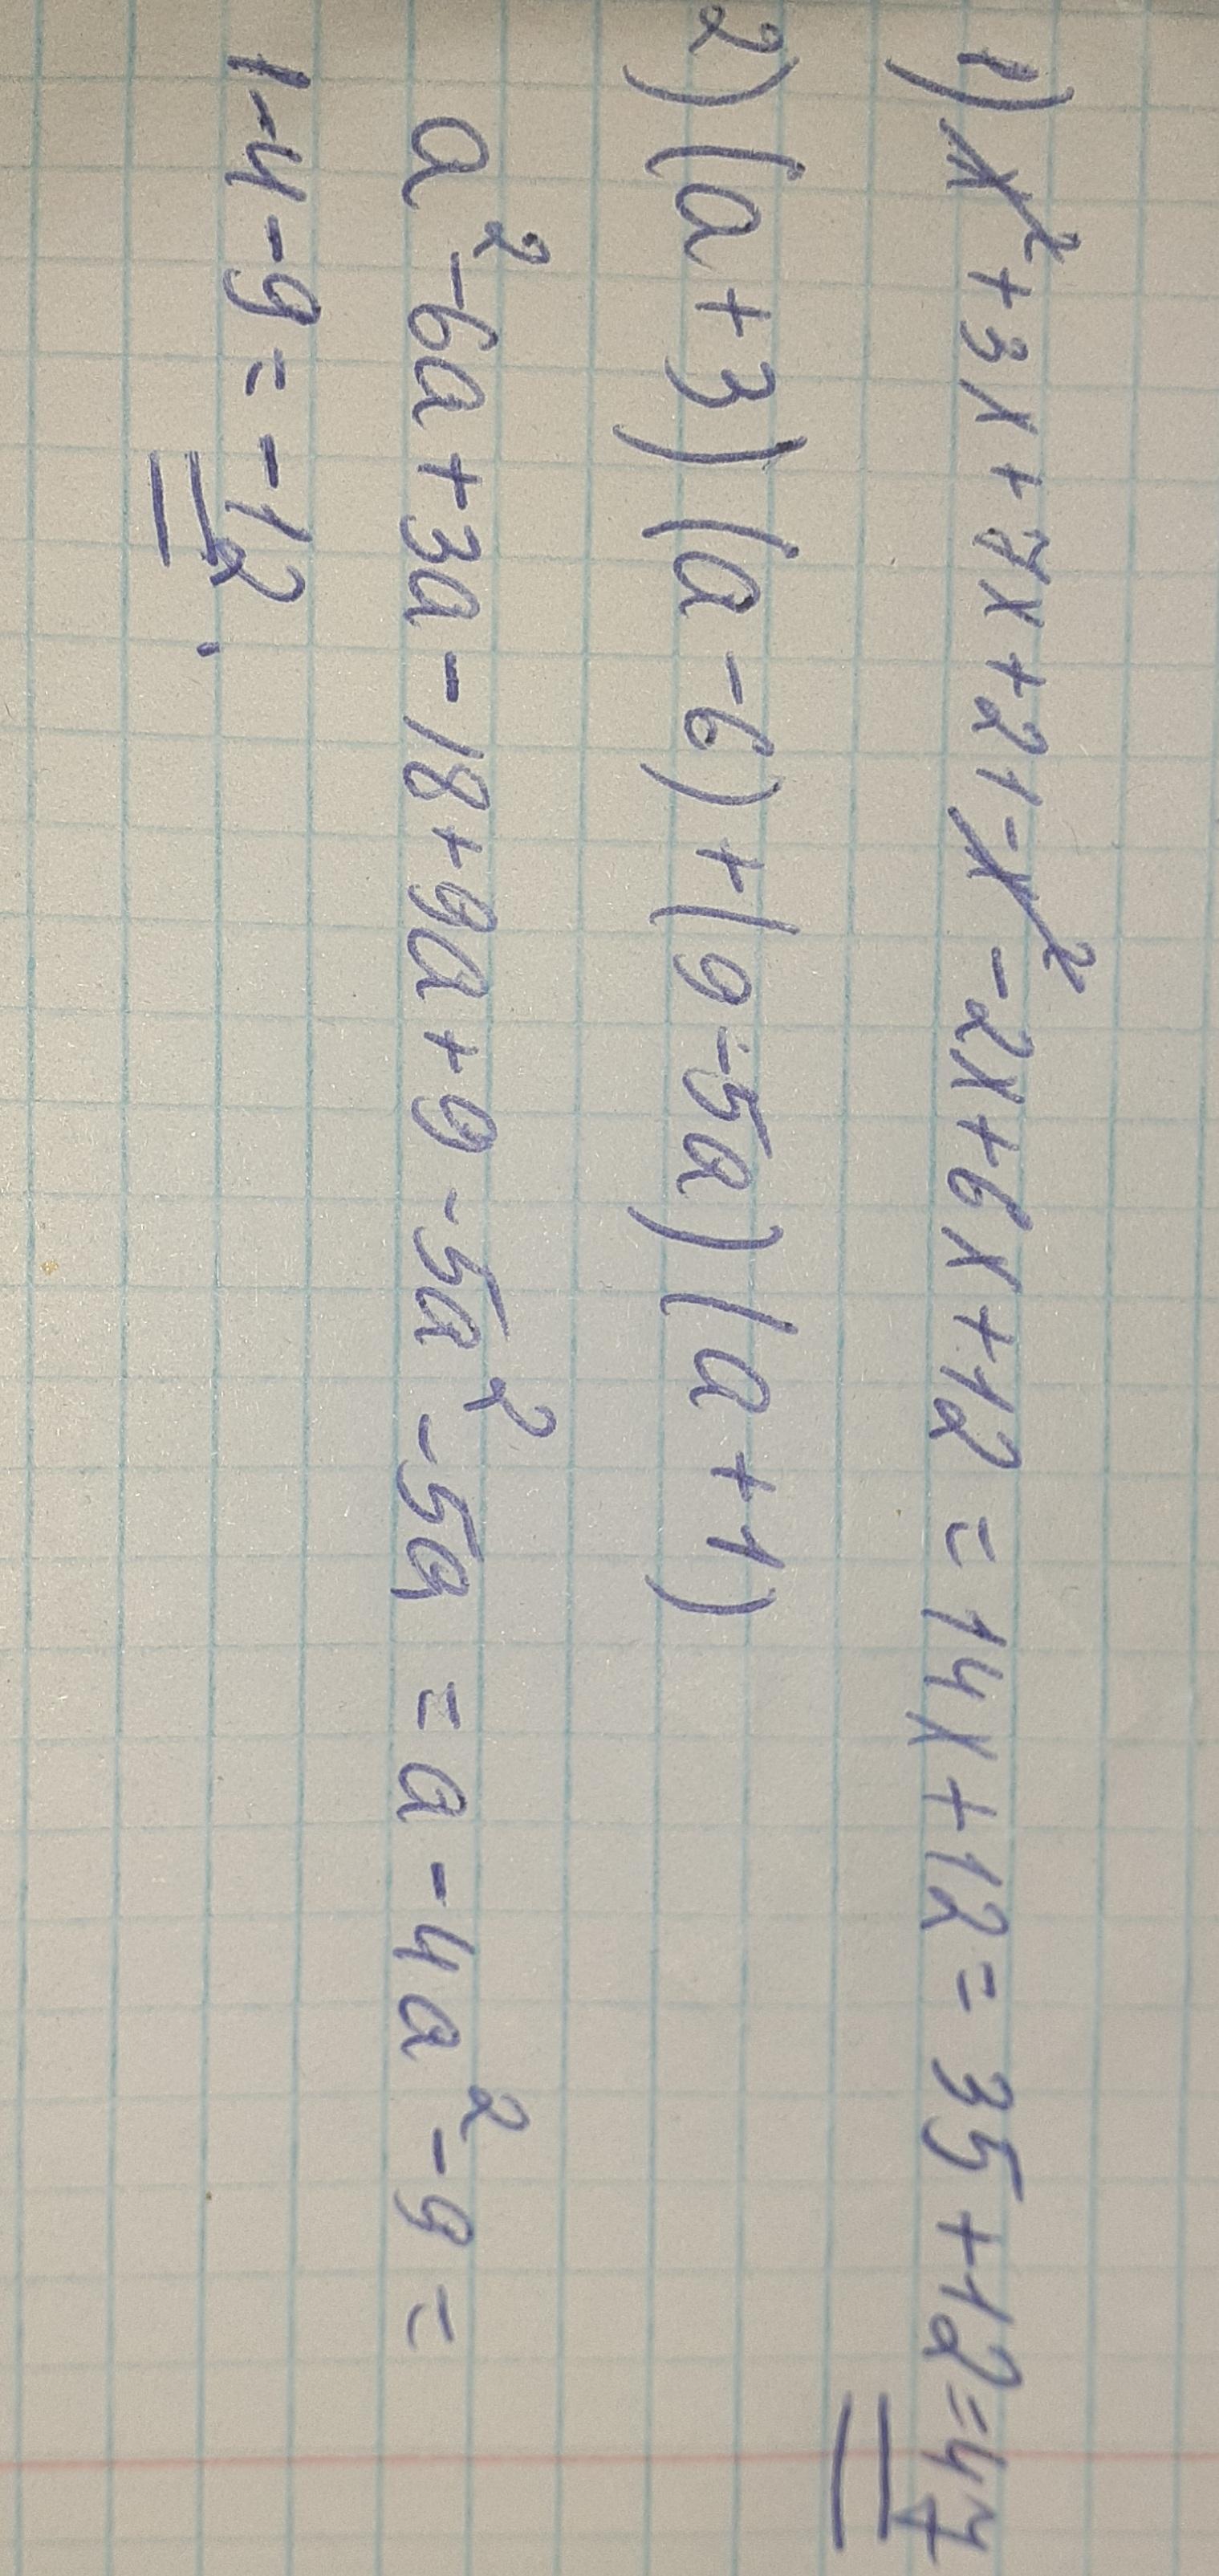 1) x² + 3x + 7x + 21 - x² - 2x + 6x + 12 = 14x + 12 = 35 + 12 = 47
2) (a + 3) (a - 6) + (9 - 5a) (a + 1)
a² - 6a + 3a - 18 + 9a + 9 - 5a² - 5a = a - 4a² - 9 =
1 - 4 - 9 = -12.